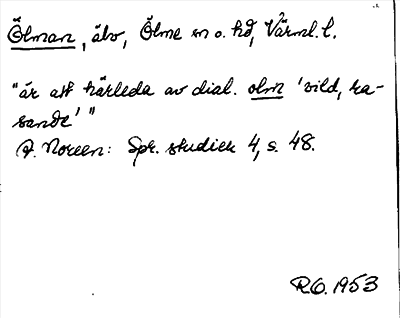 Ölman, älv, Ölme sn o. hd, Värml. l.
"är att härleda av dial. olm 'vild, ra-
sande'"
A. Noreen: Spr. studier 4, s. 48.
R.O. 1953